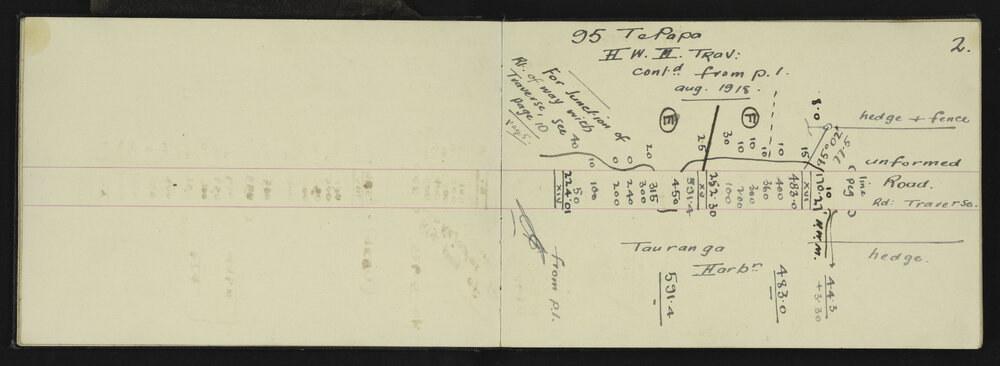 2.
95 Te Papa
H W. M. Trav:
contd from p. 1.
aug. 1918.
For Junction of
Rt. of way with
Traverse, see
page 10
Page 5.
E
F
8.0
hedge + fence
95° 02'
77.5
unformed
Road.
Rd: Traverse.
line
peg
hedge.
40
10
0
0
20
25
30
10
10
10
10
15
XIV
224.01
50
100
200
240
300
315
450
591.4
XV
262.30
100
200
300
360
400
483.0
XVI
170.27
10
H.W.M.
Tauranga
Harbr
from p. 1.
591.4
483.0
44.3
+3.30